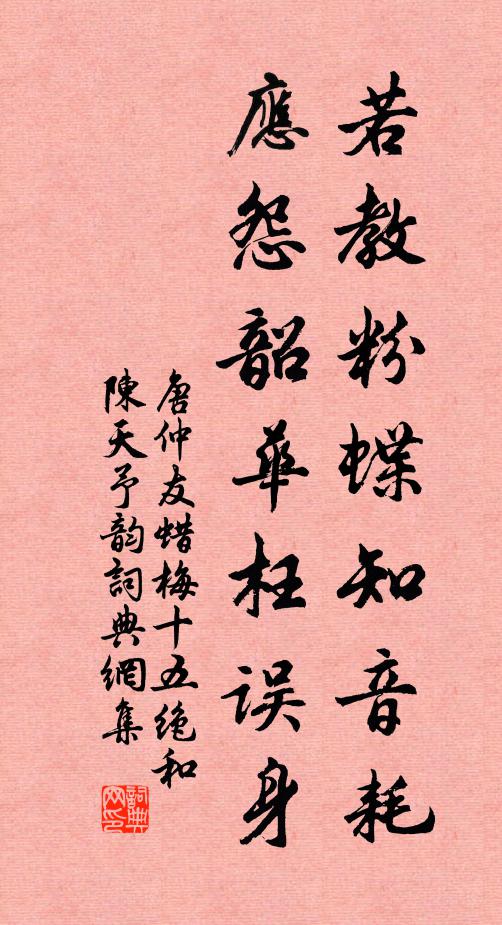 若教粉蝶知音耗
應怨韶華枉誤身
唐仲友蜡梅十五絶和
陳天予韵詞典網集
詞典網印